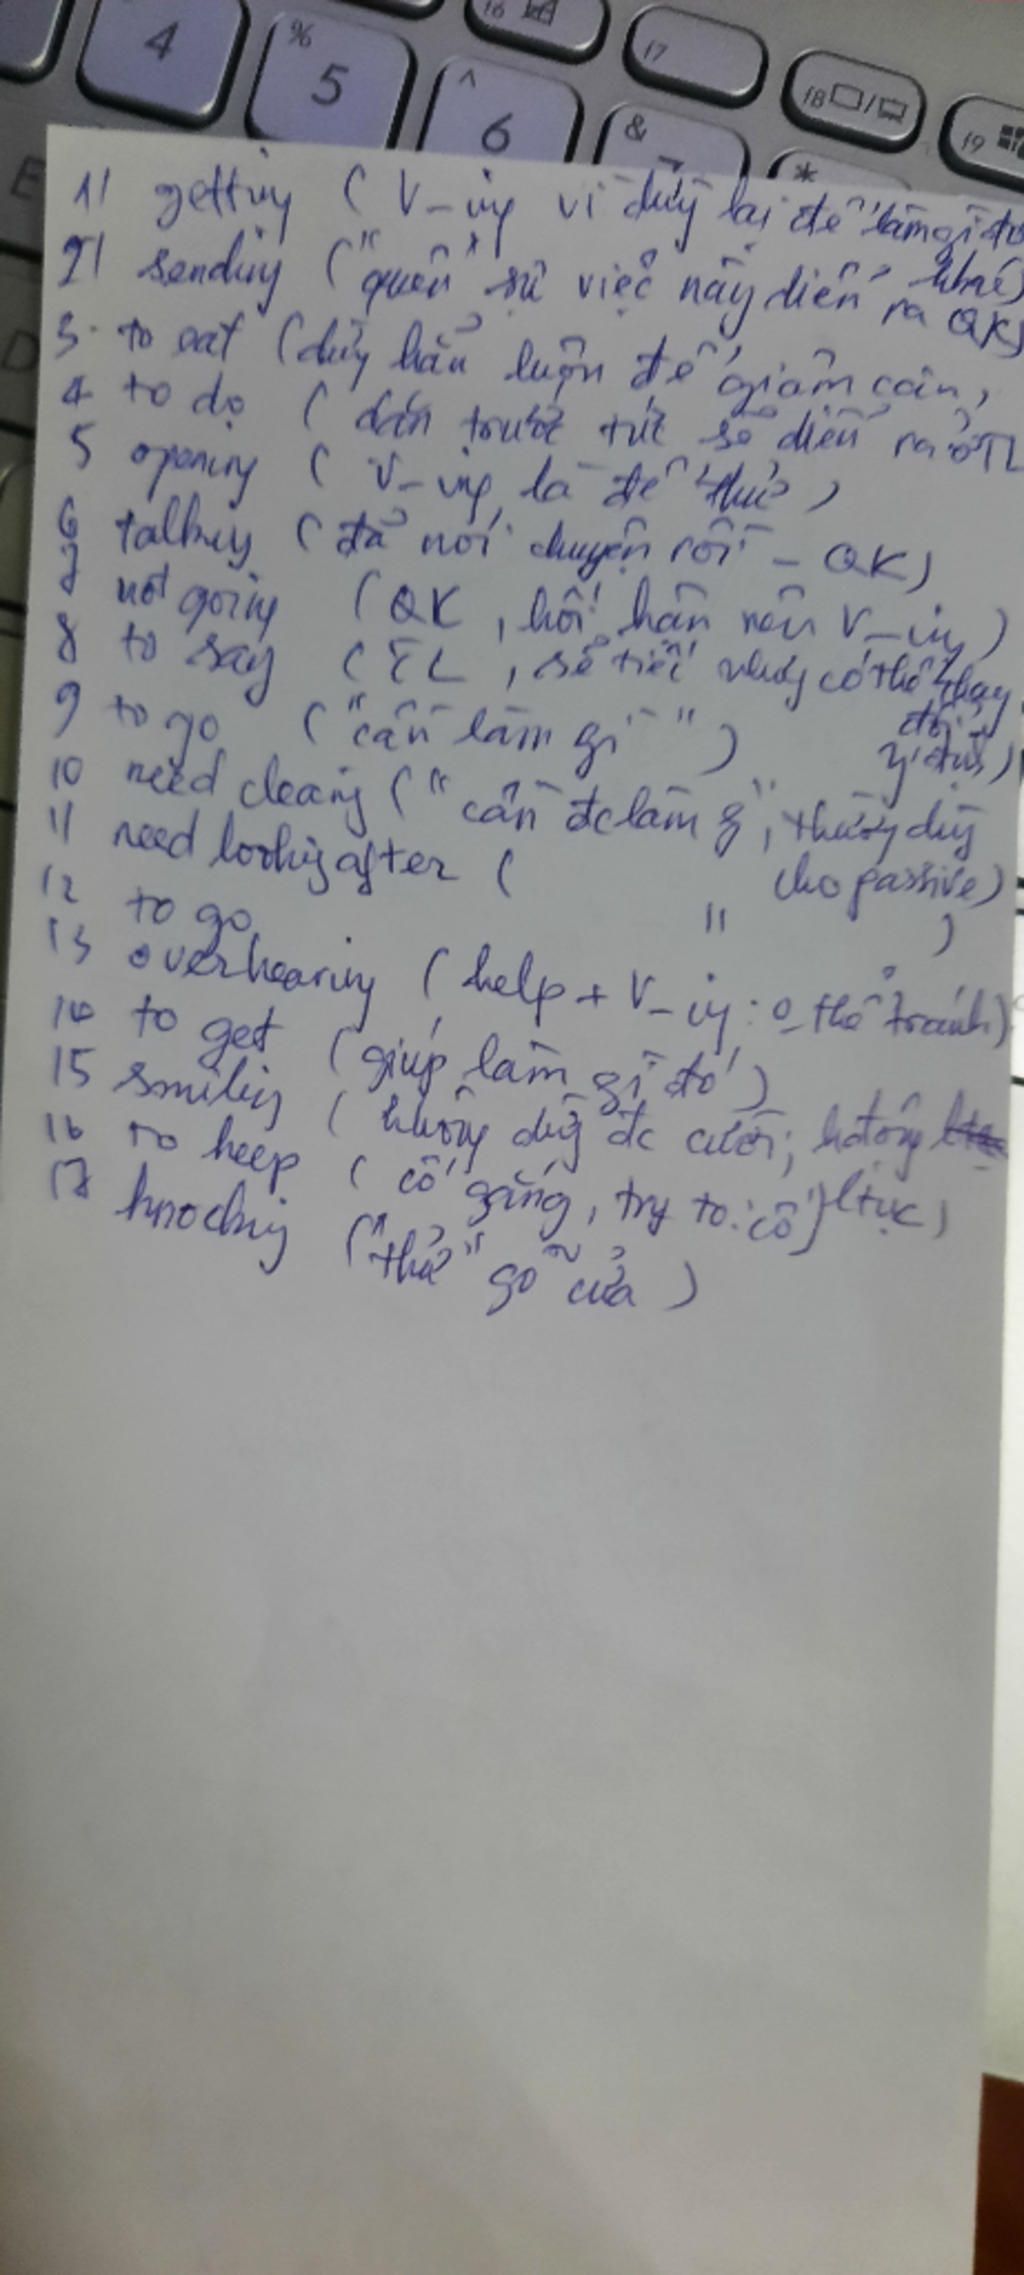 4 % 5 ^ 6 & 7 * f6 f7 f8 f9
E
D
1) getting (V_ing vì dừng lại để làm gì đó khác)
2) sending ("quên" sự việc này diễn ra QK)
3. to eat (dừng hẳn luôn để giảm cân,
4 to do ( trước tức sẽ diễn ra ở TL
5 opening ( V_ing là để thử )
6 talking (đã nói chuyện rồi - QK)
7 not going (QK, hối hận nên V_ing )
8 to say ( TL, sẽ tiếc nhưng có thể thay đổi ý định)
9 to go ("cần làm gì")
10 need cleaning ("cần đc làm g", thường dùng cho passive)
11 need looking after ( " )
12 to go
13 overhearing (help + V_ing: 0 thể tránh)
14 to get (giúp làm gì đó)
15 smiling ( không dừng đc cười; hđộng ltục)
16 to keep ( cố gắng, try to: cố)
17 knocking ("thử" gõ cửa )